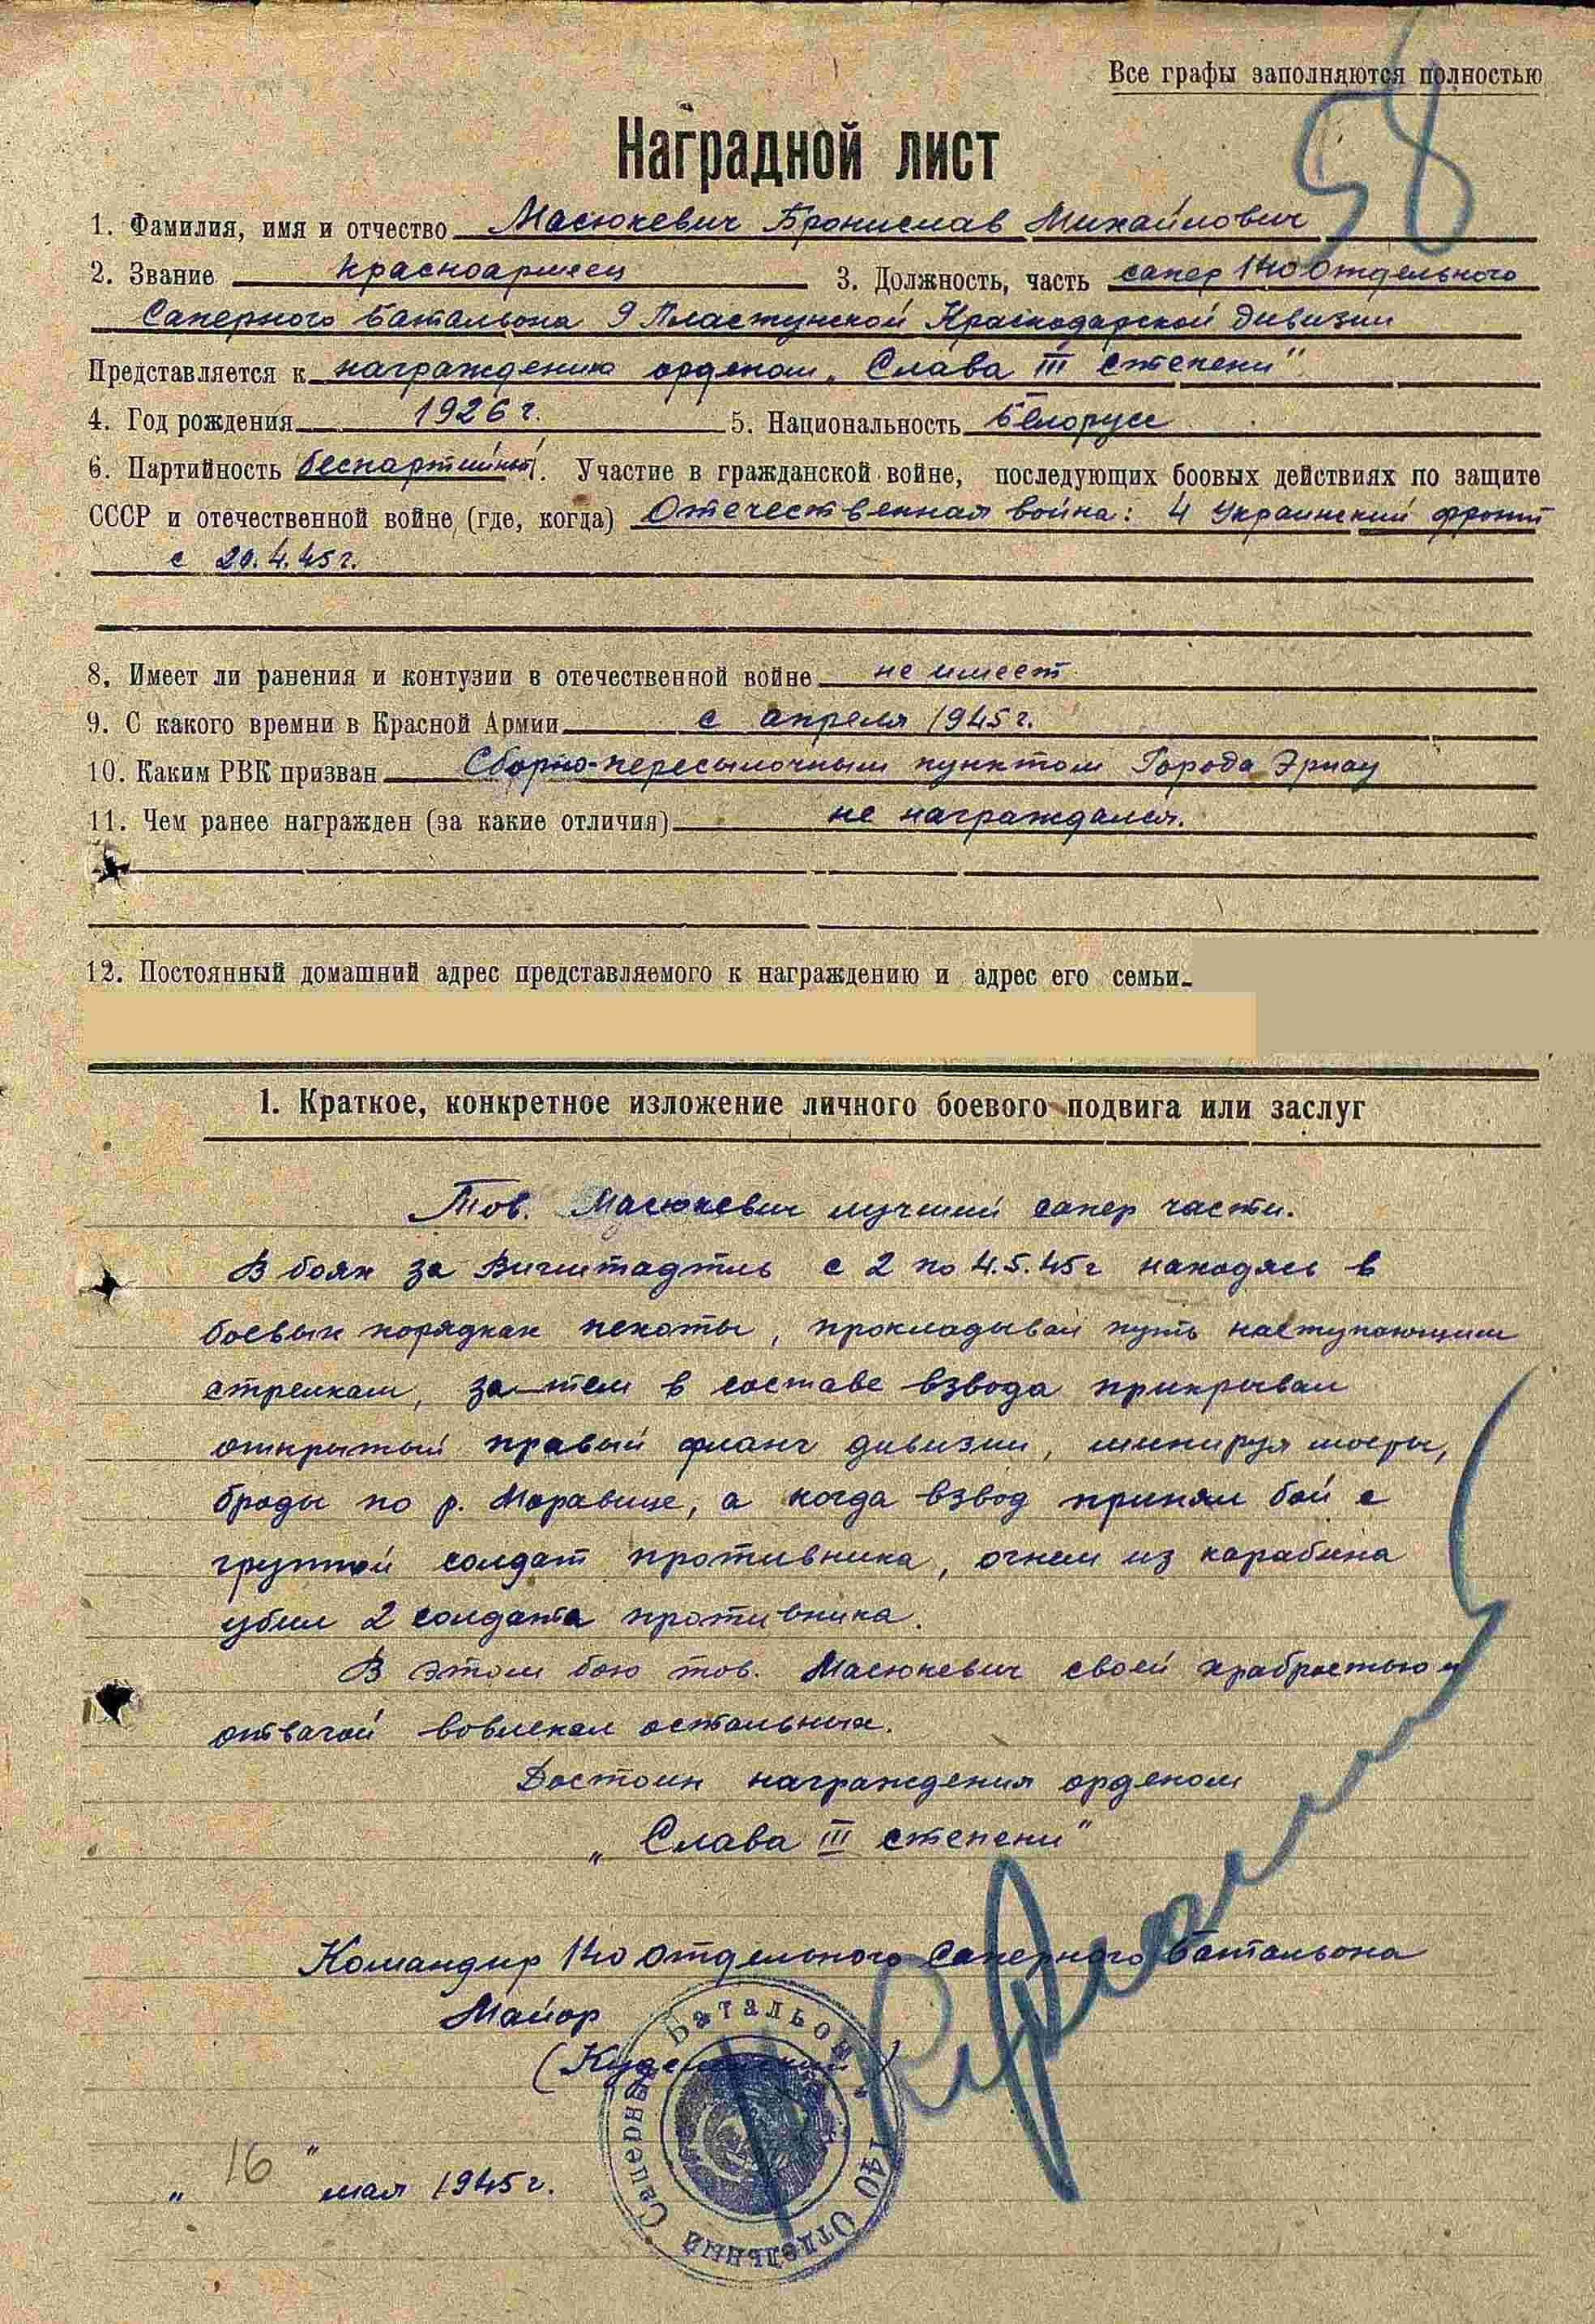 Все графы заполняются полностью
58
Наградной лист
1. Фамилия, имя и отчество Масюкевич Бронислав Михайлович
2. Звание красноармеец 3. Должность, часть сапер 140 Отдельного
Саперного Батальона 9 Пластунской Краснодарской дивизии
Представляется к награждению орденом „Слава III степени"
4. Год рождения 1926 г. 5. Национальность Белорусс
6. Партийность беспартийный. Участие в гражданской войне, последующих боовых действиях по защите
СССР и отечественной войне (где, когда) Отечественная война: 4 Украинский фронт
с 20.4.45 г.
8. Имеет ли ранения и контузии в отечественной войне не имеет
9. С какого времни в Красной Армии с апреля 1945 г.
10. Каким РВК призван Сборно-пересылочным пунктом Города Эрнау
11. Чем ранее награжден (за какие отличия) не награждался.
12. Постоянный домашний адрес представляемого к награждению и адрес его семьи
1. Краткое, конкретное изложение личного боевого подвига или заслуг
Тов. Масюкевич лучший сапер части.
В боях за Вигштадтль с 2 по 4.5.45 г находясь в
боевых порядках пехоты, прокладывал путь наступающим
стрелкам, за-тем в составе взвода прикрывал
открытый правый фланг дивизии, минируя мосты,
броды по р. Моравице, а когда взвод принял бой с
группой солдат противника, огнем из карабина
убил 2 солдата противника.
В этом бою тов. Масюкевич своей храбростью и
отвагой вовлекал остальных.
Достоин награждения орденом
„Слава III степени"
Командир 140 Отдельного Саперного Батальона
Майор
„16" мая 1945 г.
140 Отдельный Саперный Батальон